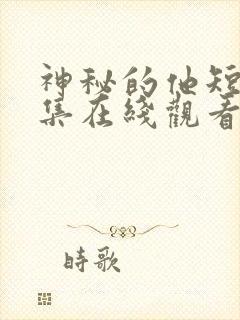 神秘的他短
集在线觀看
時歌